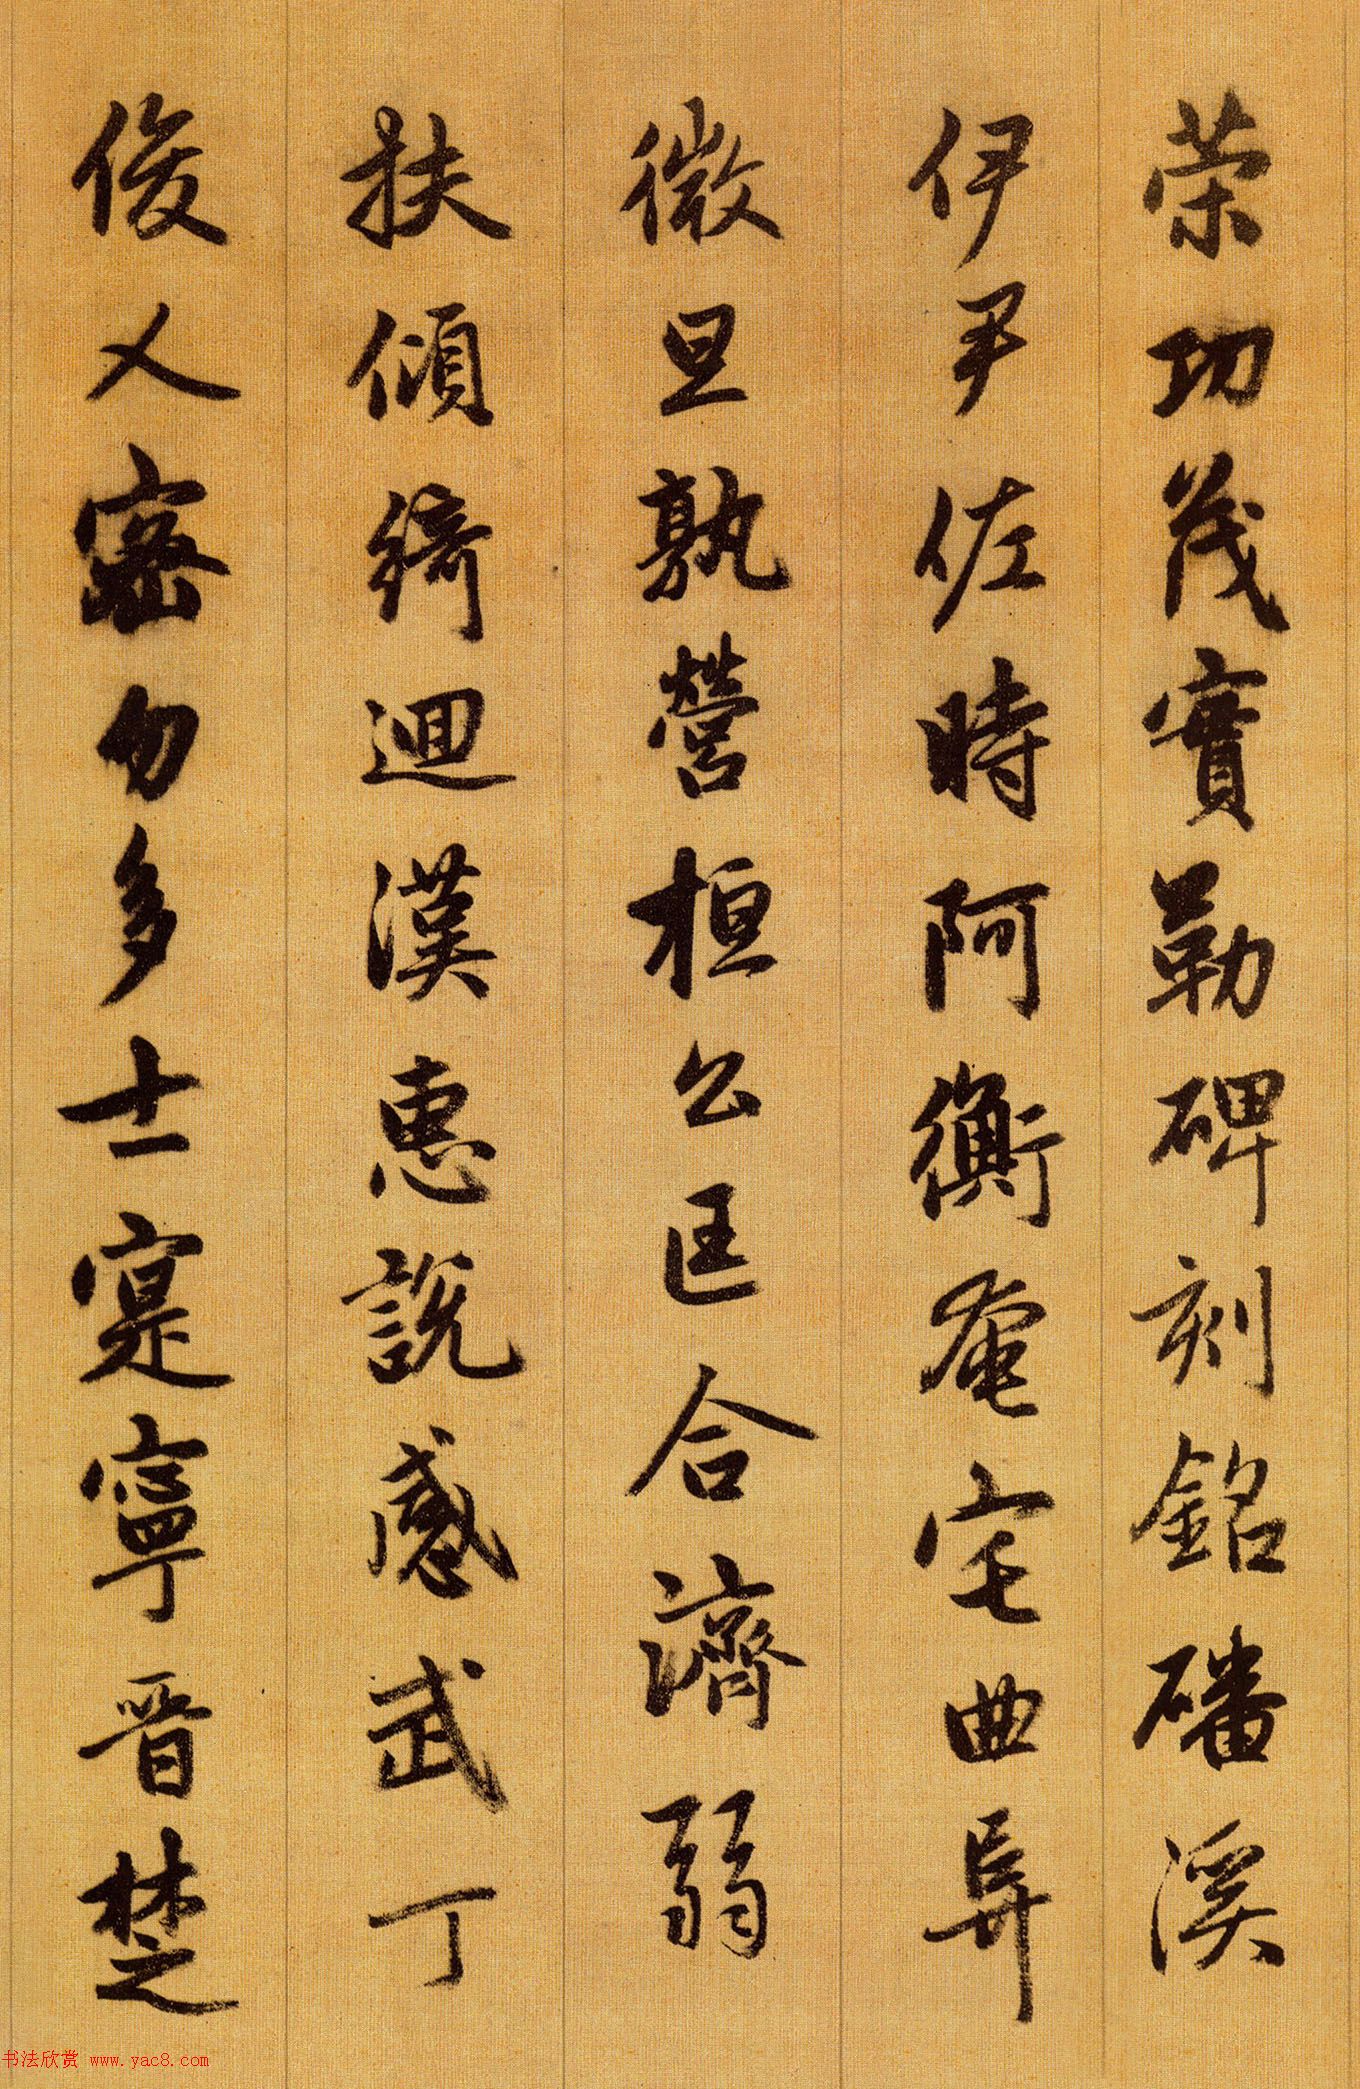 荣功茂實勒碑刻銘磻溪
伊尹佐時阿衡奄宅曲阜
微旦孰營桓公匡合濟弱
扶傾綺迴漢惠說感武丁
俊乂密勿多士寔寧晉楚
书法欣赏 www.yac8.com